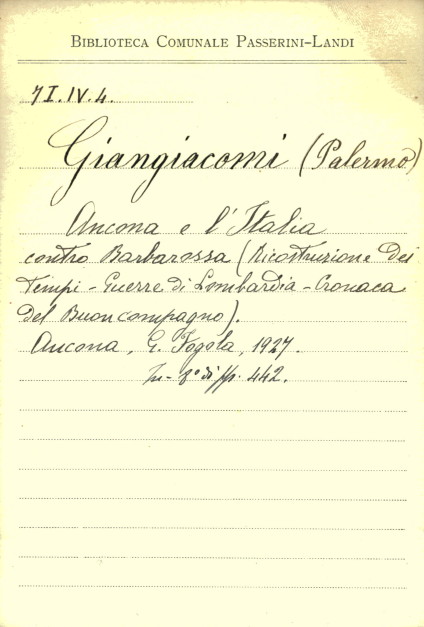 BIBLIOTECA COMUNALE PASSERINI-LANDI
7I.IV.4.
Giangiacomi (Palermo)
Ancona e l'Italia
contro Barbarossa (Ricostruzione dei
Tempi - Guerre di Lombardia - Cronaca
del Buoncompagno).
Ancona, G. Fogola, 1927.
In-8° di pp. 442.